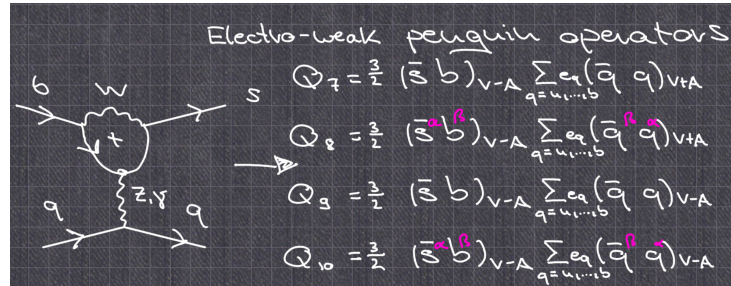 Electro-weak penguin operators
b W s
t
Z,γ
q q
Q₇ = 3/2 (s̄ b)V-A Σq=u,...,b eq (q̄ q)V+A
Q₈ = 3/2 (s̄^α b^β)V-A Σq=u,...,b eq (q̄^β q^α)V+A
Q₉ = 3/2 (s̄ b)V-A Σq=u,...,b eq (q̄ q)V-A
Q₁₀ = 3/2 (s̄^α b^β)V-A Σq=u,...,b eq (q̄^β q^α)V-A